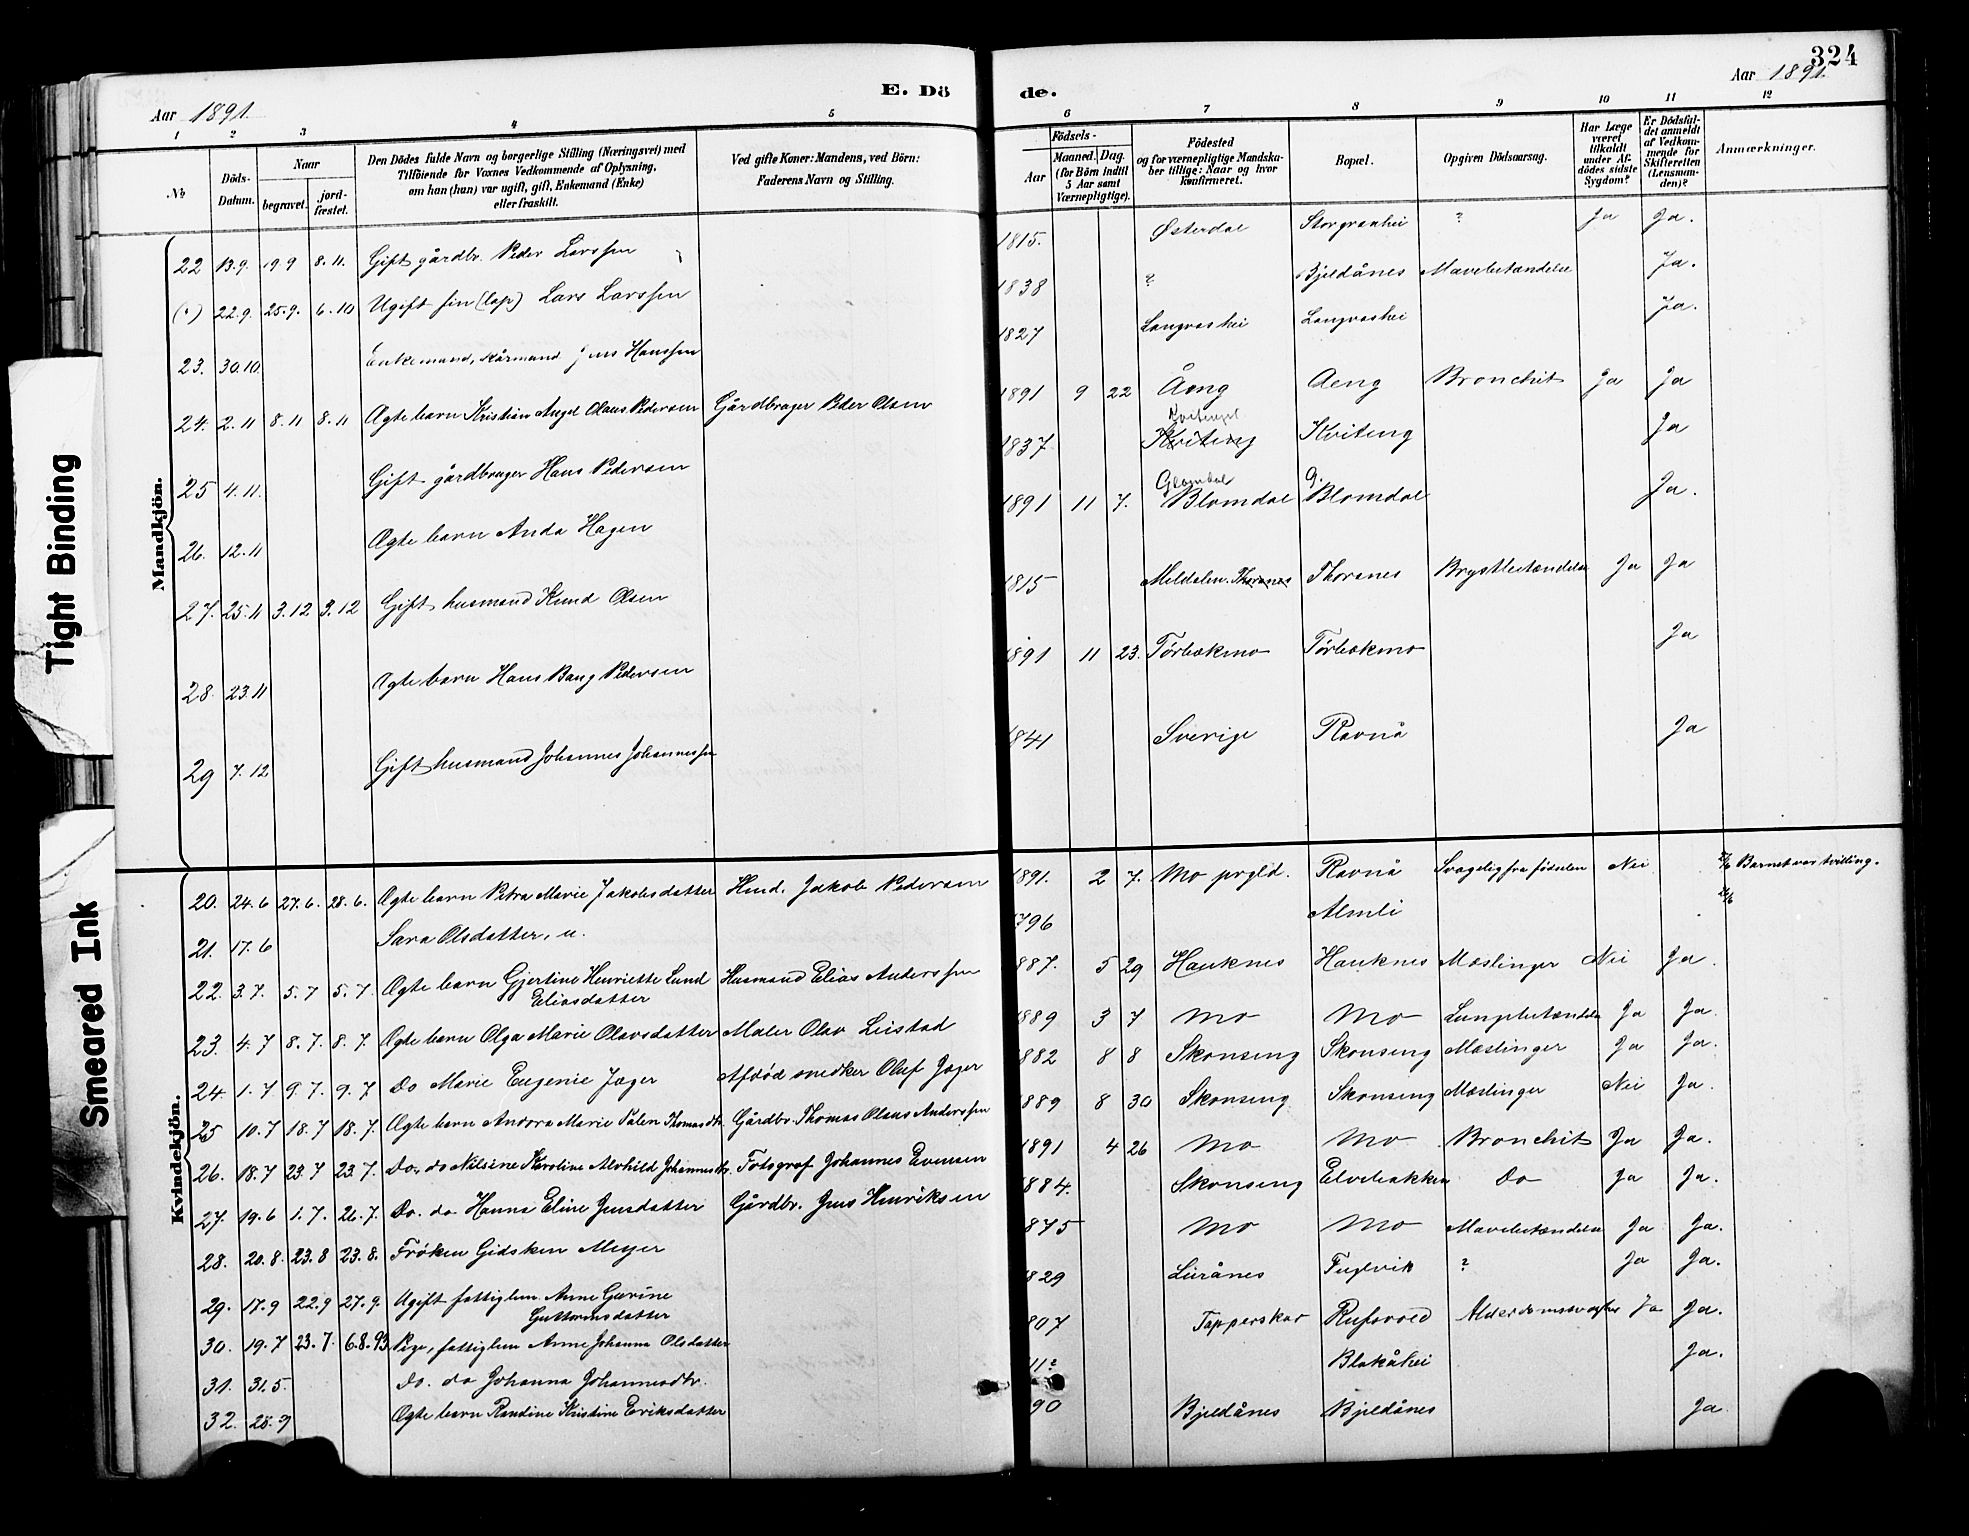 324
Aar 1891.
E. Dö
de.
Aar 1891.
1 2 3 4 5 6 7 8 9 10 11 12
No
Döds-Datum.
Naar
begravet.
jord-fæstet.
Den Dödes fulde Navn og borgerlige Stilling (Næringsvei) med
Tilföiende for Voxnes Vedkommende af Oplysning,
om han (hun) var ugift, gift, Enkemand (Enke)
eller fraskilt.
Ved gifte Koner: Mandens, ved Börn:
Faderens Navn og Stilling.
Födsels-
Aar
Maaned. Dag.
(for Börn indtil
5 Aar samt
Værnepligtige).
Födested
og for værnepligtige Mandska-
ber tillige: Naar og hvor
konfirmeret.
Bopæl.
Opgiven Dödsaarsag.
Har Læge
været
tilkaldt
under Af-
dödes sidste
Sygdom?
Er Dödsfal-
det anmeldt
af Vedkom-
mende for
Skifteretten
(Lensman-
den)?
Anmærkninger.
Mandkjön.
22 13.9. 19.9 8.11. Gift gårdbr. Peder Larssen 1815. Østerdal Storgraahei ? Ja Ja.
(") 22.9. 25.9. 6.10 Ugift fin (lap) Lars Larssen 1838 ? Bjeldånes Mavebetændelse Ja.
23. 30.10. Enkemand, kårmand Jens Hanssen 1827 Langvashei Langvashei Ja.
24. 2.11 8.11 8.11 Ægte barn Kristian Angel Olaus Pedersen Gårdbruger Peder Olsen 1891 9 22 Åeng Aeng Bronchit Ja Ja
25 4.11. Gift gårdbruger Hans Pedersen 1837 Kviteng Kviteng Ja
26. 12.11 Ægte barn Anda Hagen 1891 11 7. Glomdal Blomdal G. Blomdal Ja.
27. 25.11 3.12 3.12 Gift husmand Knud Olsen 1815 Meldalen. Thoranes Thoranes Brystbetændelse Ja Ja
28. 23.11 Ægte barn Hans Bang Pedersen 1891 11 23. Tørbækmo Tørbækmo Ja
29 7.12 Gift husmand Johannes Johannessen 1841 Sverige Ravnå Ja
Kvindekjön.
20. 24.6 27.6. 28.6. Ægte barn Petra Marie Jakobsdatter Husd. Jakob Pedersen 1891. 2 7. Mo prgld. Ravnå Svagelig fra fødselen Nei Barnet var tvilling.
21. 17.6 Sara Olsdatter, u. 1796 Almli
22. 3.7. 5.7 5.7. Ægte barn Gjertine Henriette Lund
Eliasdatter Husmand Elias Anderssen 887. 5 29 Hauknes Hauknes Mæslinger Nei Ja.
23. 4.7 8.7. 8.7. Ægte barn Olga Marie Olavsdatter Maler Olav Leistad 889 3 7 Mo Mo Lungebetændelse Ja Ja.
24. 1.7 9.7. 9.7 Do Marie Eugenie Jæger Afdød snedker Oluf Jæger 882 8 8 Skonseng Skonseng Mæslinger Ja Ja.
25 10.7 18.7 18.7. Ægte barn Andora Marie Palen Thomasdtr. Gårdbr. Thomas Olaus Anderssen 889 8 30 Skonseng Skonseng Mæslinger Nei Ja.
26. 18.7 23.7 23.7. Do. do Nilsine Karoline Alvhild Johannesdtr. Fotograf Johannes Evensen 1891 4 26 Mo Mo Bronchit Ja Ja.
27. 19.6 1.7. 26.7. Do. do Hanna Eline Jensdatter Gårdbr. Jens Henriksen 884. Skonseng Elvebakken Do Ja Ja.
28. 20.8. 23.8 23.8. Frøken Gidsken Meyer 875 Mo Mo Mavebetændelse Ja Ja.
29. 17.9 22.9 27.9. Ugift fattiglem Anne Gurine
Guttormsdatter 829 Luränes Fuglvik ? Ja Ja.
30. 19.7 23.7. 6.8.93 Pige, fattiglem Anne Johanna Olsdatter 807 Tapperskar Rufsvold Alderdomssvaghed Ja Ja.
31. 31.5. Do. do Johanna Johannesdtr. 11? Blakåhei Ja.
32. 28.9 Ægte barn Randine Kristine Eriksdatter 90 Bjeldånes Bjeldånes Ja
Tight Binding
Smeared Ink